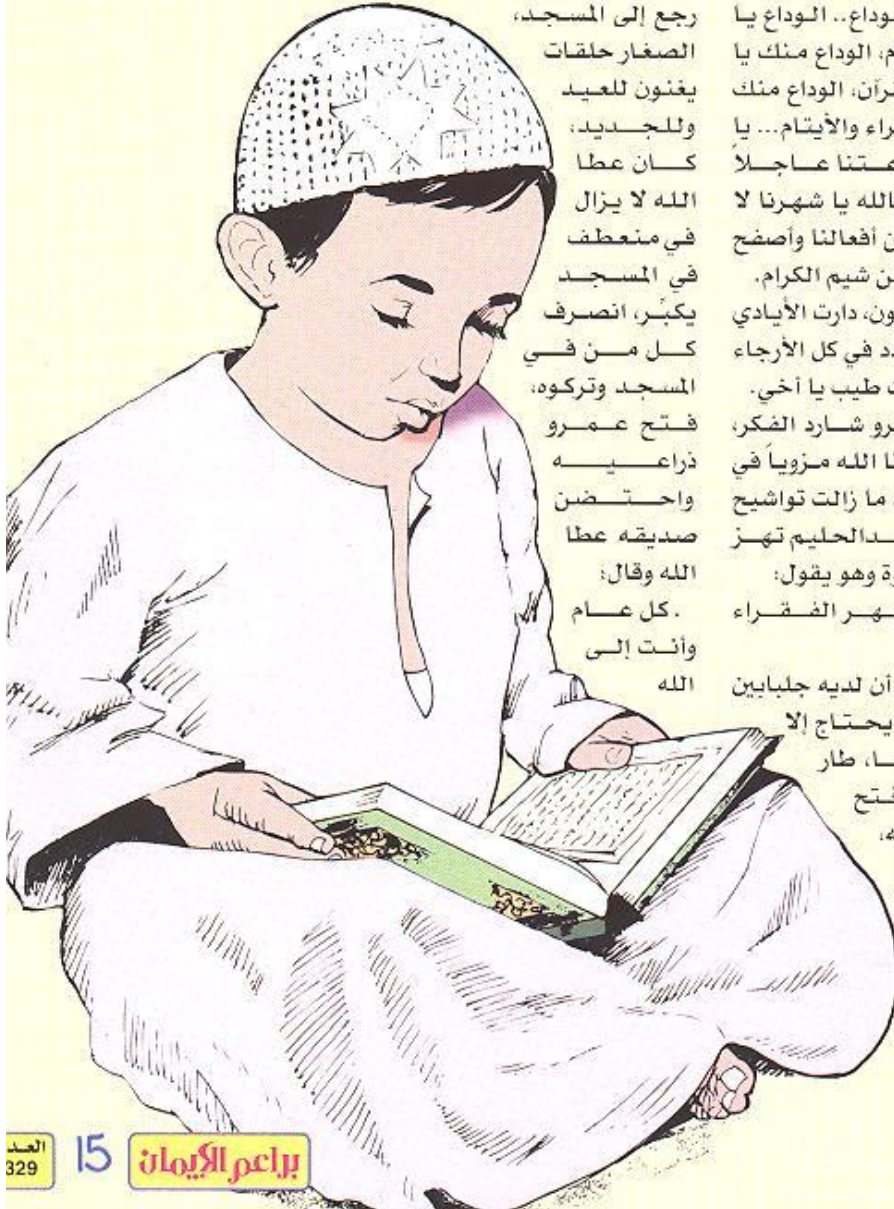 وداع.. الوداع يا
م، الوداع منك يا
رآن، الوداع منك
راء والأيتام... يا
عتنا عاجلاً
الله يا شهرنا لا
ن أفعالنا وأصفح
ن شيم الكرام.
ون، دارت الأيادي
دد في كل الأرجاء
ت طيب يا أخي.
رو شارد الفكر،
ا الله مزوياً في
ما زالت تواشيح
دالحليم تهز
ة وهو يقول:
هر الفقراء
أن لديه جلبابين
يحتاج إلا
ا، طار
فتح
ه،
رجع إلى المسجد،
الصغار حلقات
يغنون للعيد
وللجديد،
كان عطا
الله لا يزال
في منعطف
في المسجد
يكبِّر، انصرف
كل من في
المسجد وتركوه،
فتح عمرو
ذراعيه
واحتضن
صديقه عطا
الله وقال:
. كل عام
وأنت إلى
الله
براعم الإيمان
15
العد
329